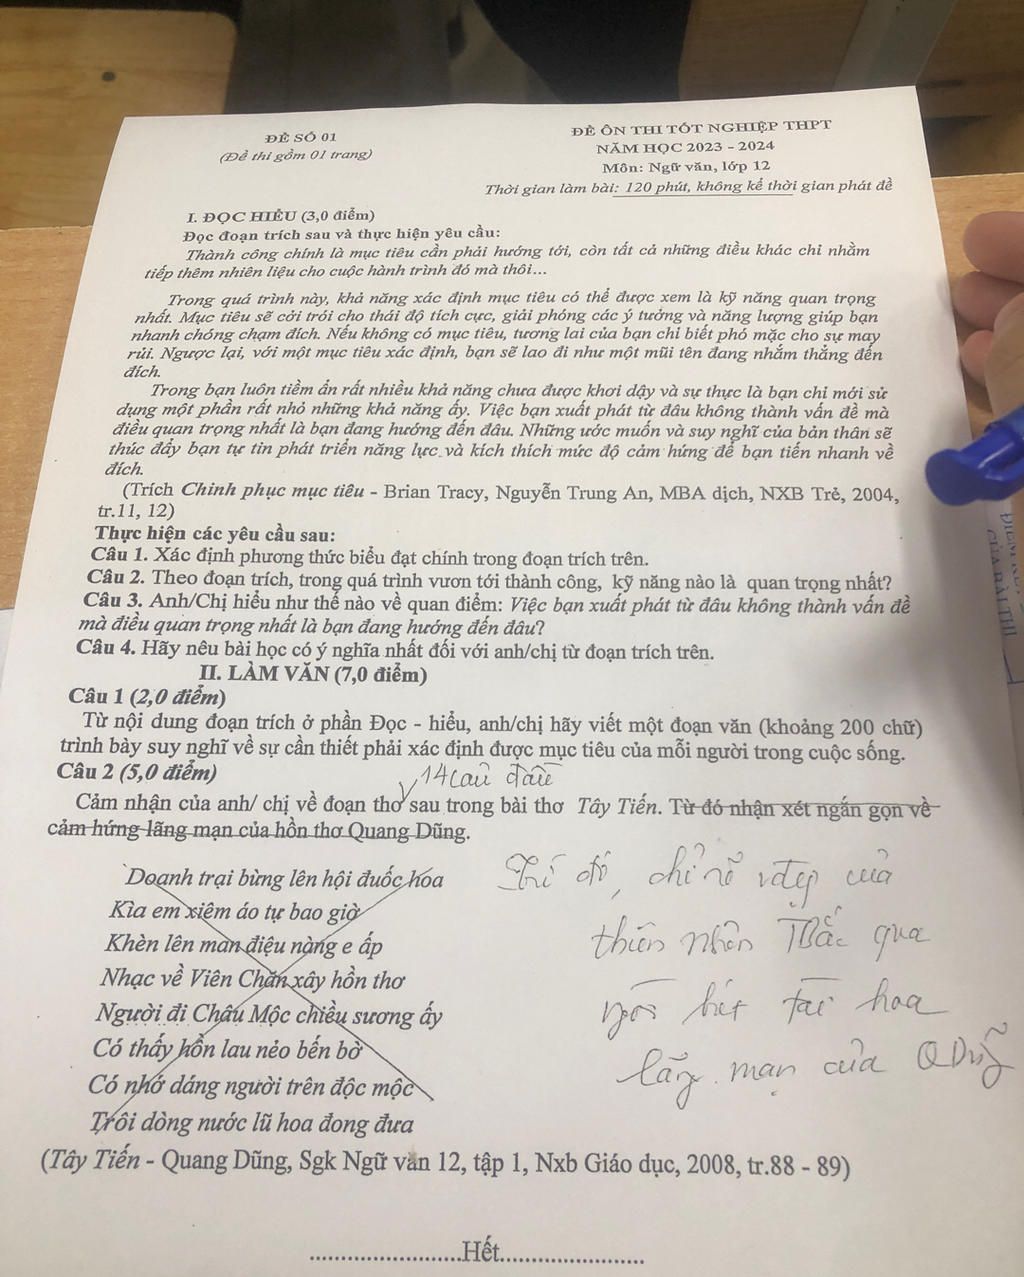 ĐỀ SỐ 01
(Đề thi gồm 01 trang)
ĐỀ ÔN THI TỐT NGHIỆP THPT
NĂM HỌC 2023 - 2024
Môn: Ngữ văn, lớp 12
Thời gian làm bài: 120 phút, không kể thời gian phát đề
I. ĐỌC HIỂU (3,0 điểm)
Đọc đoạn trích sau và thực hiện yêu cầu:
Thành công chính là mục tiêu cần phải hướng tới, còn tất cả những điều khác chỉ nhằm
tiếp thêm nhiên liệu cho cuộc hành trình đó mà thôi...
Trong quá trình này, khả năng xác định mục tiêu có thể được xem là kỹ năng quan trọng
nhất. Mục tiêu sẽ cởi trói cho thái độ tích cực, giải phóng các ý tưởng và năng lượng giúp bạn
nhanh chóng chạm đích. Nếu không có mục tiêu, tương lai của bạn chỉ biết phó mặc cho sự may
rủi. Ngược lại, với một mục tiêu xác định, bạn sẽ lao đi như một mũi tên đang nhắm thẳng đến
đích.
Trong bạn luôn tiềm ẩn rất nhiều khả năng chưa được khơi dậy và sự thực là bạn chỉ mới sử
dụng một phần rất nhỏ những khả năng ấy. Việc bạn xuất phát từ đâu không thành vấn đề mà
điều quan trọng nhất là bạn đang hướng đến đâu. Những ước muốn và suy nghĩ của bản thân sẽ
thúc đẩy bạn tự tin phát triển năng lực và kích thích mức độ cảm hứng để bạn tiến nhanh về
đích.
(Trích Chinh phục mục tiêu - Brian Tracy, Nguyễn Trung An, MBA dịch, NXB Trẻ, 2004,
tr.11, 12)
Thực hiện các yêu cầu sau:
Câu 1. Xác định phương thức biểu đạt chính trong đoạn trích trên.
Câu 2. Theo đoạn trích, trong quá trình vươn tới thành công, kỹ năng nào là quan trọng nhất?
Câu 3. Anh/Chị hiểu như thế nào về quan điểm: Việc bạn xuất phát từ đâu không thành vấn đề
mà điều quan trọng nhất là bạn đang hướng đến đâu?
Câu 4. Hãy nêu bài học có ý nghĩa nhất đối với anh/chị từ đoạn trích trên.
II. LÀM VĂN (7,0 điểm)
Câu 1 (2,0 điểm)
Từ nội dung đoạn trích ở phần Đọc - hiểu, anh/chị hãy viết một đoạn văn (khoảng 200 chữ)
trình bày suy nghĩ về sự cần thiết phải xác định được mục tiêu của mỗi người trong cuộc sống.
Câu 2 (5,0 điểm)
14 câu đầu
Cảm nhận của anh/ chị về đoạn thơ sau trong bài thơ Tây Tiến. Từ đó nhận xét ngắn gọn về
cảm hứng lãng mạn của hồn thơ Quang Dũng.
Doanh trại bừng lên hội đuốc hoa
Kìa em xiêm áo tự bao giờ
Khèn lên man điệu nàng e ấp
Nhạc về Viên Chăn xây hồn thơ
Người đi Châu Mộc chiều sương ấy
Có thấy hồn lau nẻo bến bờ
Có nhớ dáng người trên độc mộc
Trôi dòng nước lũ hoa đong đưa
đó, chỉ rõ vđẹp của
thiên nhiên TBắc qua
ngòi bút tài hoa
lãng mạn của QDũng
(Tây Tiến - Quang Dũng, Sgk Ngữ văn 12, tập 1, Nxb Giáo dục, 2008, tr.88 - 89)
........................Hết.......................
CỦA BÀI THI